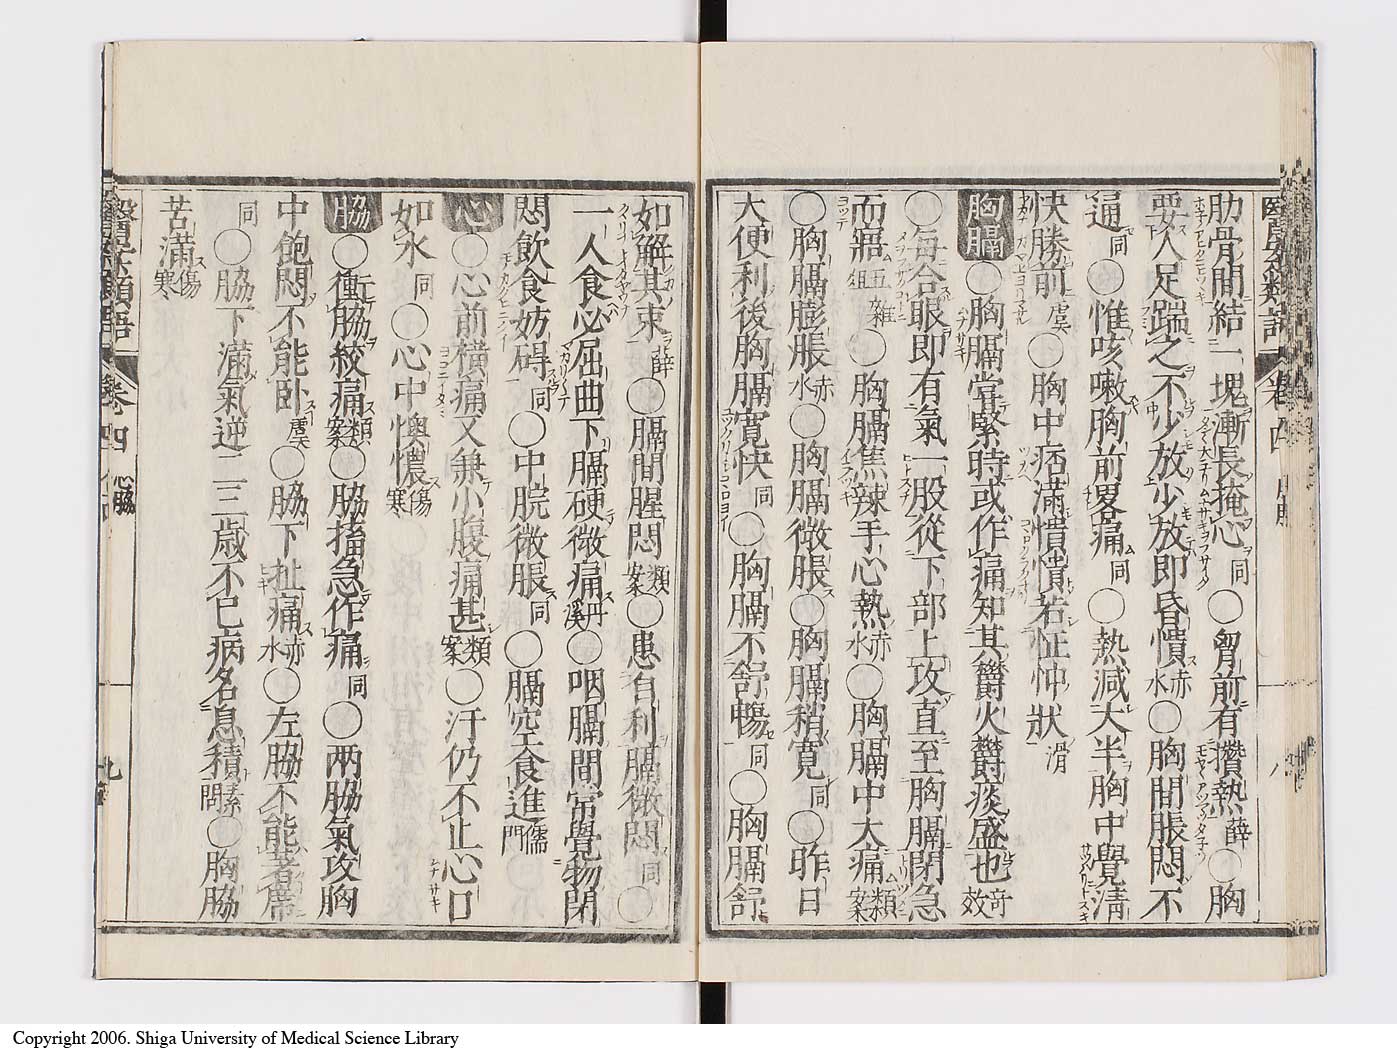 肋骨間結一塊漸長掩心同○胷前有攢熱薛○胸
要人足踹之不少放少放即昏憒赤水○胸間脹悶不
通同○惟咳嗽胸前畧痛同○熱減大半胸中覺清
快勝前虞○胸中痞滿憒憒若怔忡狀滑
胸膈○胸膈常緊時或作痛知其鬱火鬱痰盛也奇效
○每合眼即有氣一股從下部上攻直至胸膈閉急
而寤五雜組○胸膈焦辣手心熱赤水○胸膈中大痛類案
○胸膈膨脹赤水○胸膈微脹○胸膈稍寛同○昨日
大便利後胸膈寛快同○胸膈不舒暢同○胸膈舒
如解其束薛○膈間腥悶類案○患自利膈微悶同○
一人食必屈曲下膈硬微痛丹溪○咽膈間常覺物閉
悶飲食妨碍同○中脘微脹同○膈空食進儒門
心○心前橫痛又兼小腹痛甚類案○汗仍不止心口
如氷同○心中懊憹傷寒
脇○衝脇絞痛類案○脇搐急作痛同○兩脇氣攻胸
中飽悶不能卧虞○脇下扯痛赤水○左脇不能著席
同○脇下滿氣逆二三歲不已病名息積素問○胸脇
苦滿傷寒
卷四 心脇
九
Copyright 2006. Shiga University of Medical Science Library